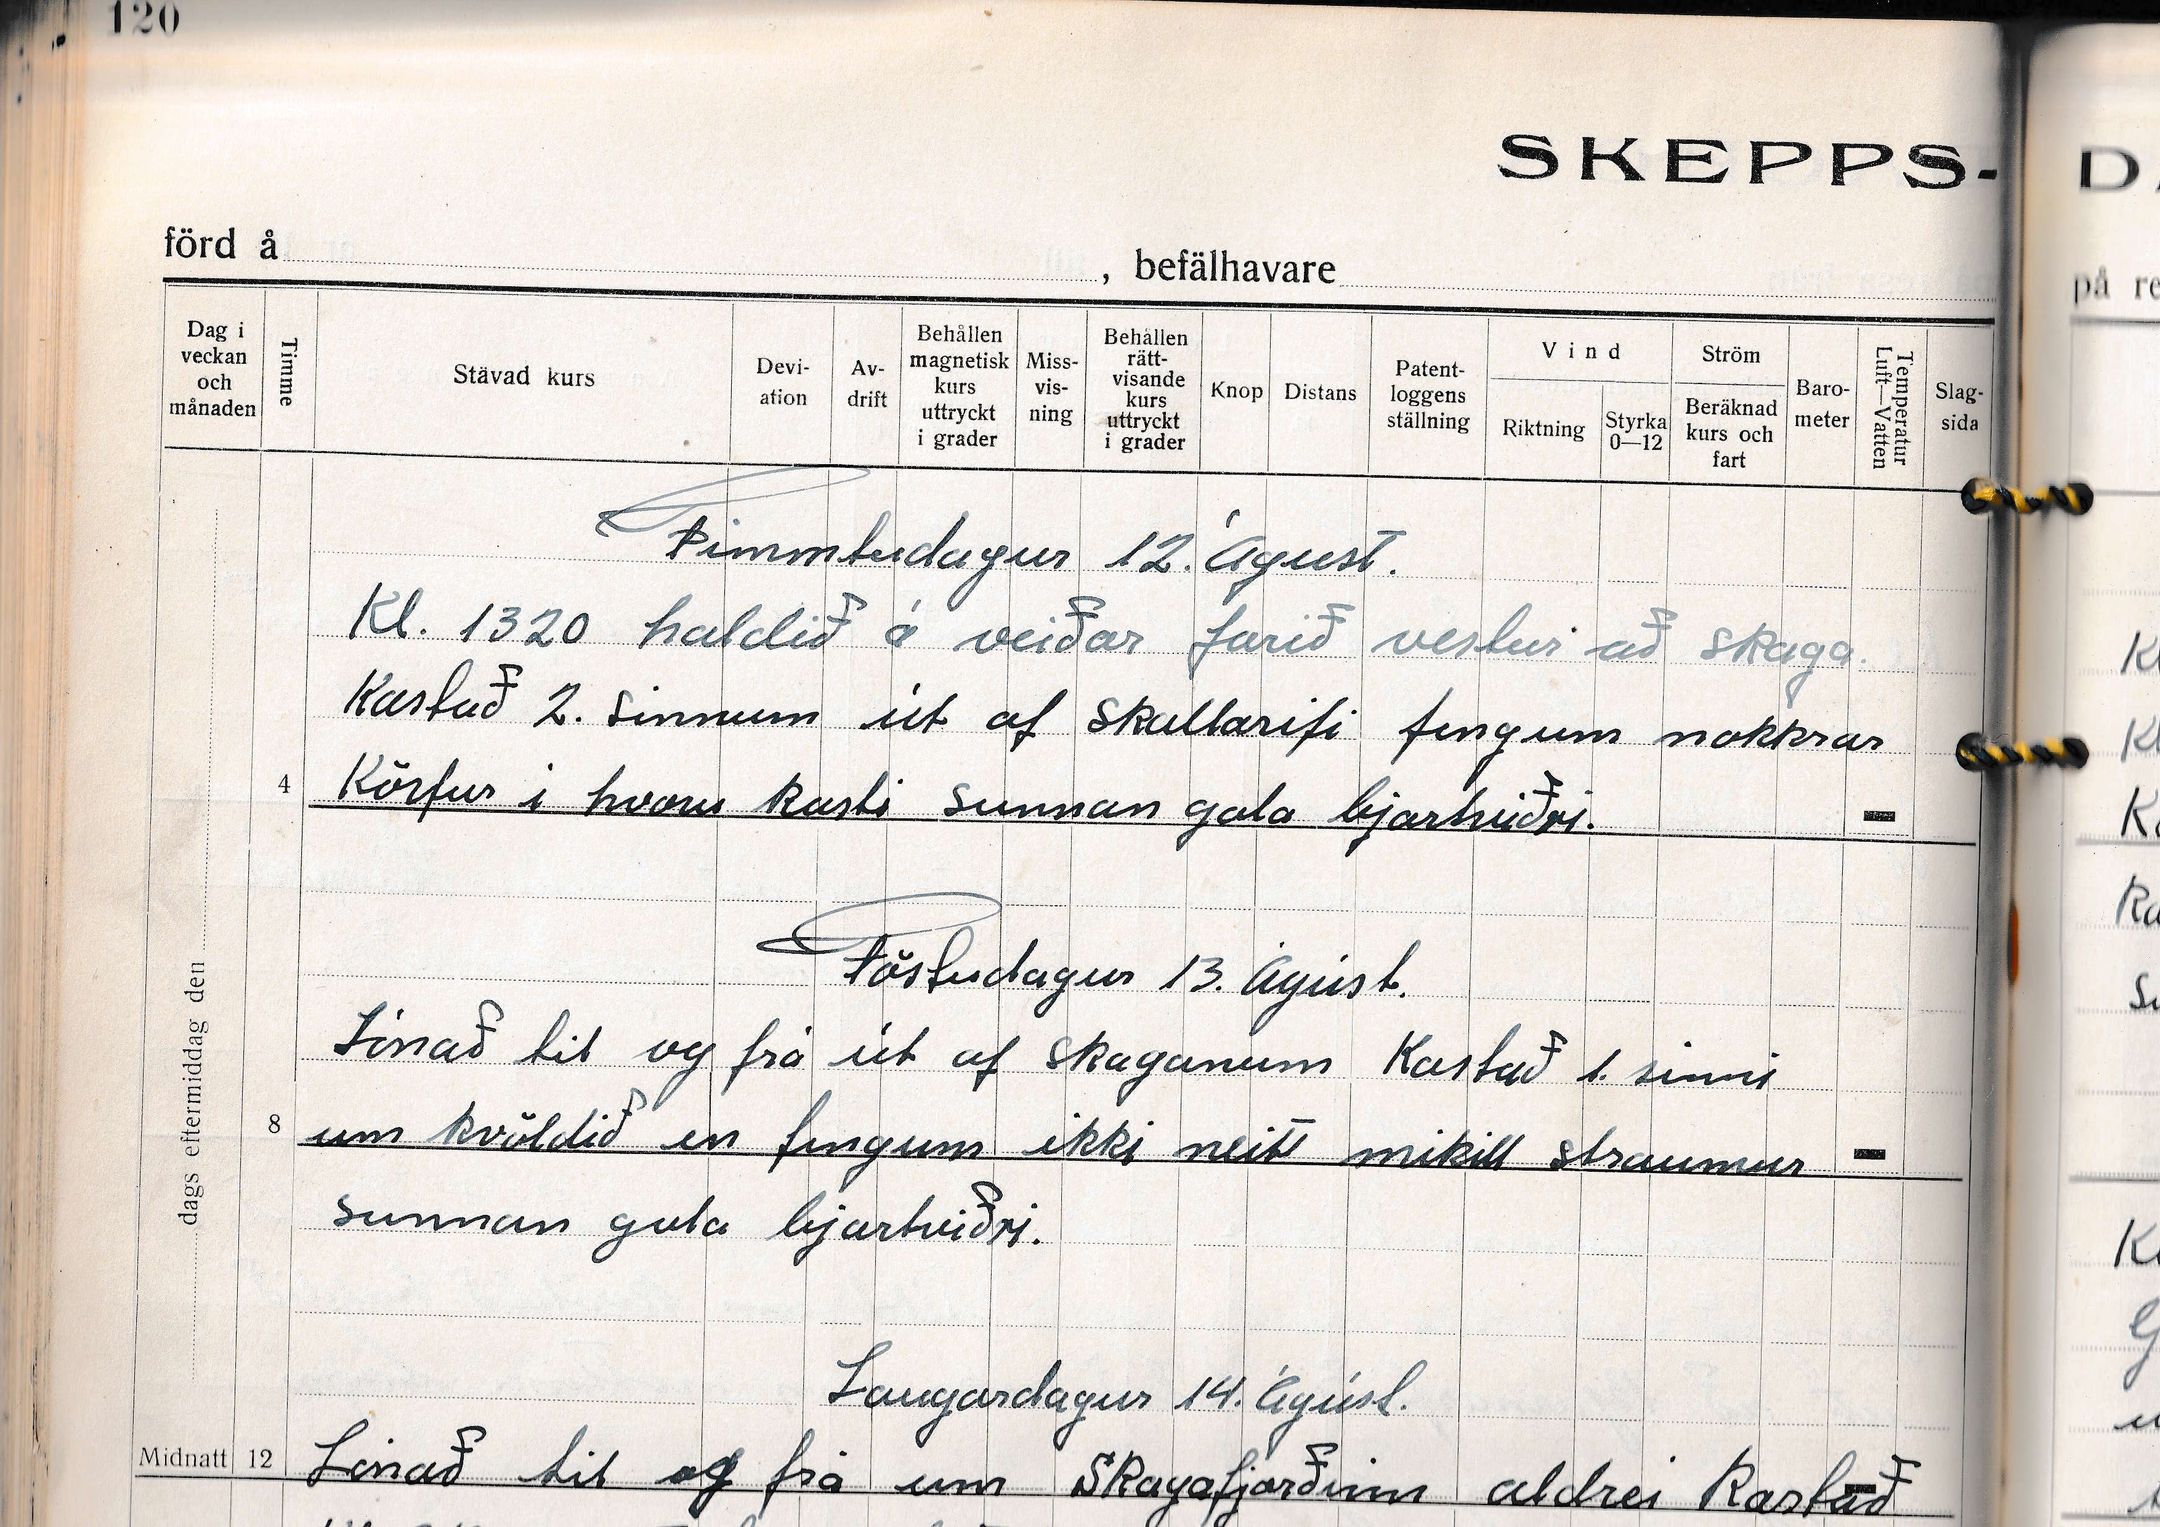 120
SKEPPS-
förd å , befälhavare
på re
Dag i veckan och månaden
Timme
Stävad kurs
Devi-ation
Av-drift
Behållen magnetisk kurs uttryckt i grader
Miss-vis-ning
Behållen rätt-visande kurs uttryckt i grader
Knop
Distans
Patent-loggens ställning
Vind
Riktning
Styrka 0—12
Ström
Beräknad kurs och fart
Baro-meter
Temperatur Luft—Vatten
Slag-sida
Fimmtudagur 12. Ágúst.
Kl. 1320 haldið á veiðar farið vestur að Skaga.
Kastað 2. sinnum út af Skallarifi fengum nokkrar
4 Körfur í hvoru kasti sunnan gola bjartviðri.
Föstudagur 13. Ágúst.
Lónað til og frá út af Skaganum Kastað 1. sinni
8 um kvöldið en fengum ikki neitt mikill straumur
sunnan gola bjartviðri.
Laugardagur 14. Ágúst.
Midnatt 12 Lónað til og frá um Skagafjörðinn aldrei Kastað
dags eftermiddag den